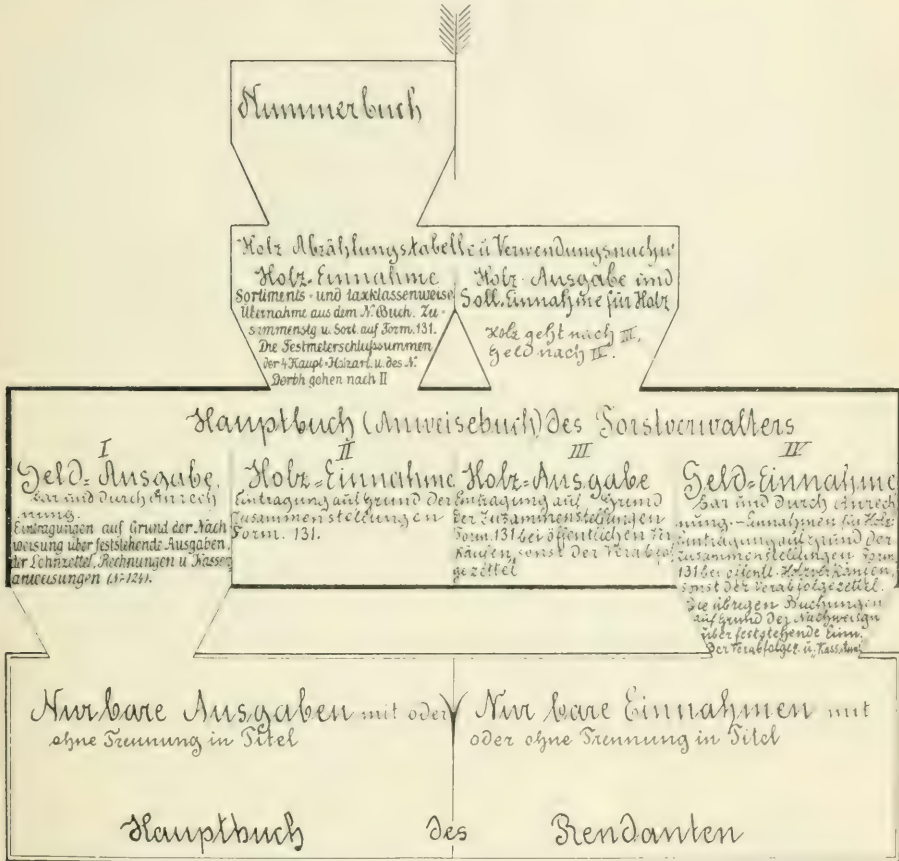 Nummerbuch
Holz Abzählungstabelle u Verwendungsnachw
Holz-Einnahme
Sortiments- und taxklassenweise
Übernahme aus dem N. Buch. Zu-
sammenstg u. Sort. auf Form. 131.
Die Festmeterschlußsummen
der 4 Haupt-Holzart. u. des N.
Derbh gehen nach II
Holz-Ausgabe und
Soll-Einnahme für Holz
Holz geht nach III,
Geld nach IV.
Hauptbuch (Anweisebuch) des Forstverwalters
I
Geld-Ausgabe.
Bar und durch Anrech
nung.
Eintragungen auf Grund der Nach
weisung über feststehende Ausgaben,
der Lohnzettel, Rechnungen u Kassen
anweisungen (N. 124).
II
Holz-Einnahme
Eintragung auf Grund der
Zusammenstellungen
Form. 131.
III
Holz-Ausgabe
Eintragung auf Grund
der Zusammenstellungen
Form. 131 bei öffentlichen Ver
käufen, sonst der Verabfol
gezettel
IV
Geld-Einnahme
Bar und durch Anrech
nung.-Einnahmen für Holz:
Eintragung auf Grund der
Zusammenstellungen Form.
131 bei öffentl. Holzverkäufen,
sonst der Verabfolgezettel.
Die übrigen Buchungen
auf Grund der Nachweisgn
über feststehende Einn.
der Verabfolgez. u.
Nur bare Ausgaben mit oder
ohne Trennung in Titel
Nur bare Einnahmen mit
oder ohne Trennung in Titel
Hauptbuch des Rendanten